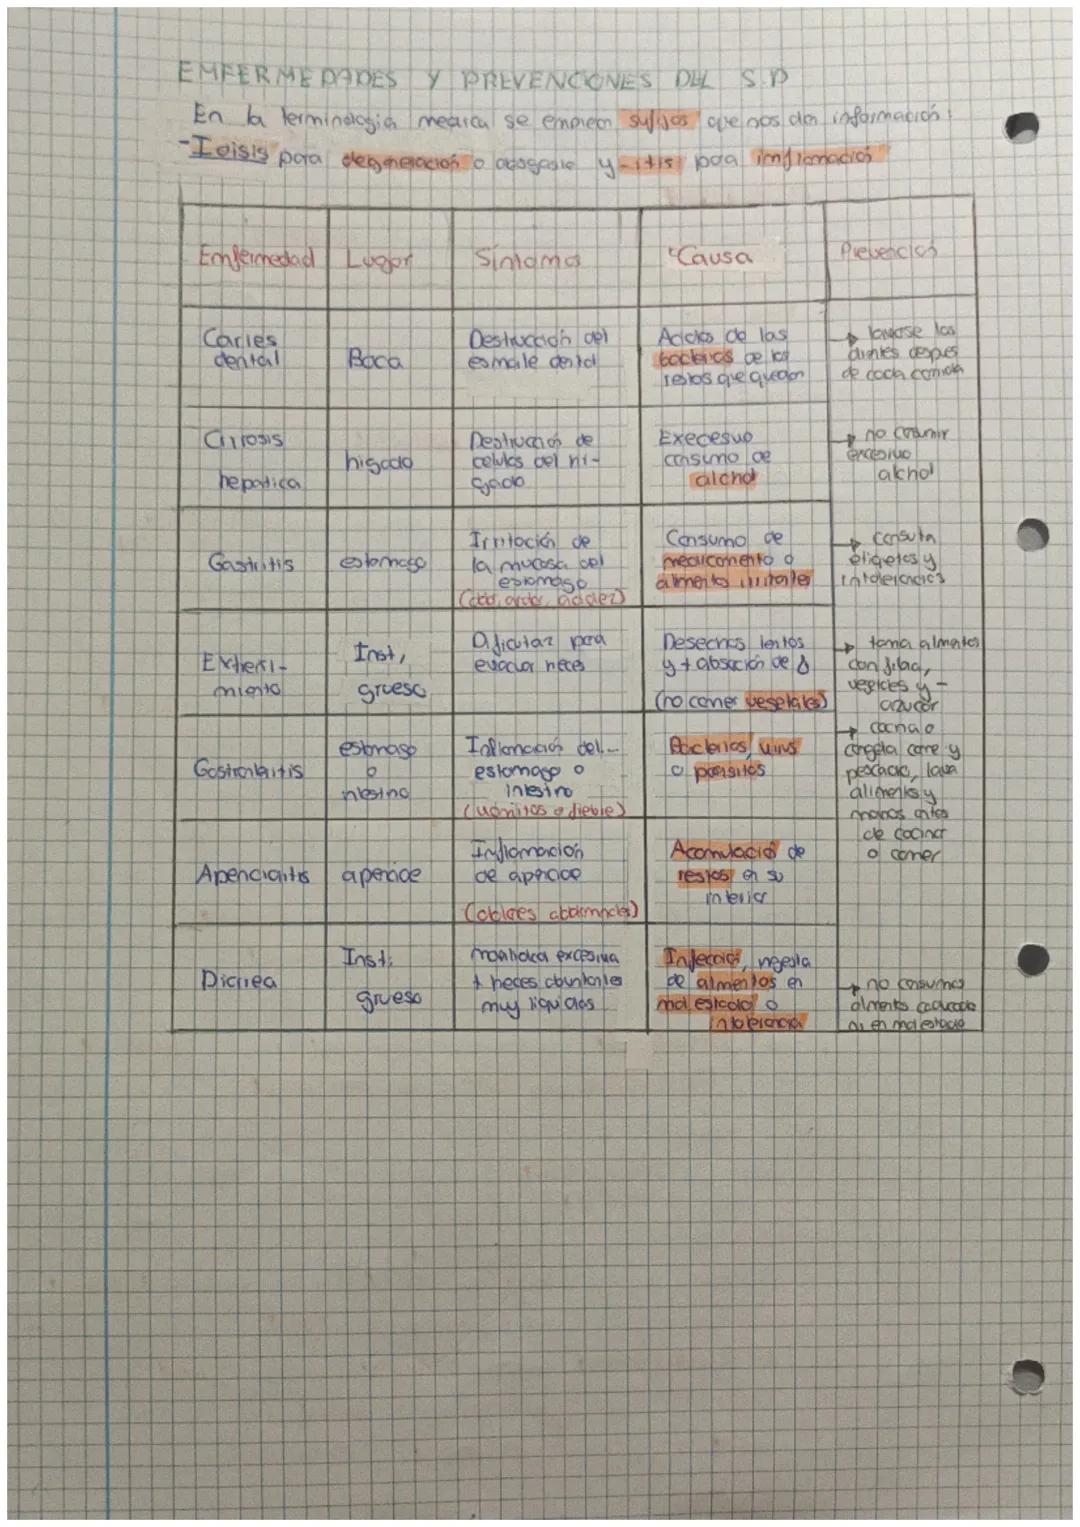 EMFERMEDADES Y PREVENCIONES DEL S.D
En la terminologia medica se emplean sufijos que nos dan información:
para degeneración o desgaste y -itis para imflamación
Emfermedad Lugar Síntoma Causa Prevención
Caries
dental
Boca
Destrucción del
esmalte dental
Acidos de las
bacterias de los
restos que quedan
→ lavarse los
dientes despues
de cada comida
Cirrosis
hepatica
higado
Destrucción de
celulas del hi-
gado
consumo de
alcohol
→ no consumir
excesivo
alchol
Gastritis
estomago
Irritación de
la mucosa del
estomago
Consumo de
medicamento o
alimento irritantes
→ consulta
etiquetas y
intolerancias
Extreñi-
miento
Inst,
grueso
para
evacuar heces
Desechos lentos
y + absoción de
(no comer vegetales)
→ toma alimentos
con fibra,
vegetales y -
azucar
estomago
o
Inflamación del
estomago o
Bacterias, virus
o parasitos
→ cocina o
congela carne y
pescado, lava
alimentos y
manos antes
de cocinar
o comer
Inflamación
de
Acomulació de
restos en su
interior
Diarrea
Inst.
grueso
excesiva
+ heces abuntantes
muy liquidas
Infección, ingesta
de alimentos en
mal estado o
intolerancia
→ no consumas
alimentos caducados
ni en mal estado